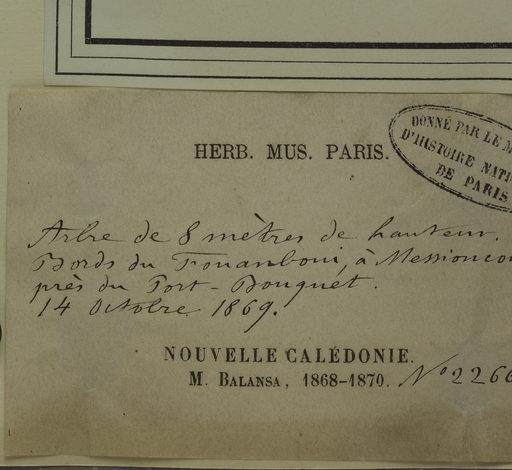 HERB. MUS. PARIS.
DONNÉ PAR LE M
D'HISTOIRE NATI
DE PARIS
Arbre de 8 mètres de hauteur.
Bords du Fouanboui, à Messioncou
près du Port-Bouquet.
14 Octobre 1869.
NOUVELLE CALÉDONIE.
M. BALANSA, 1868-1870. No 2266